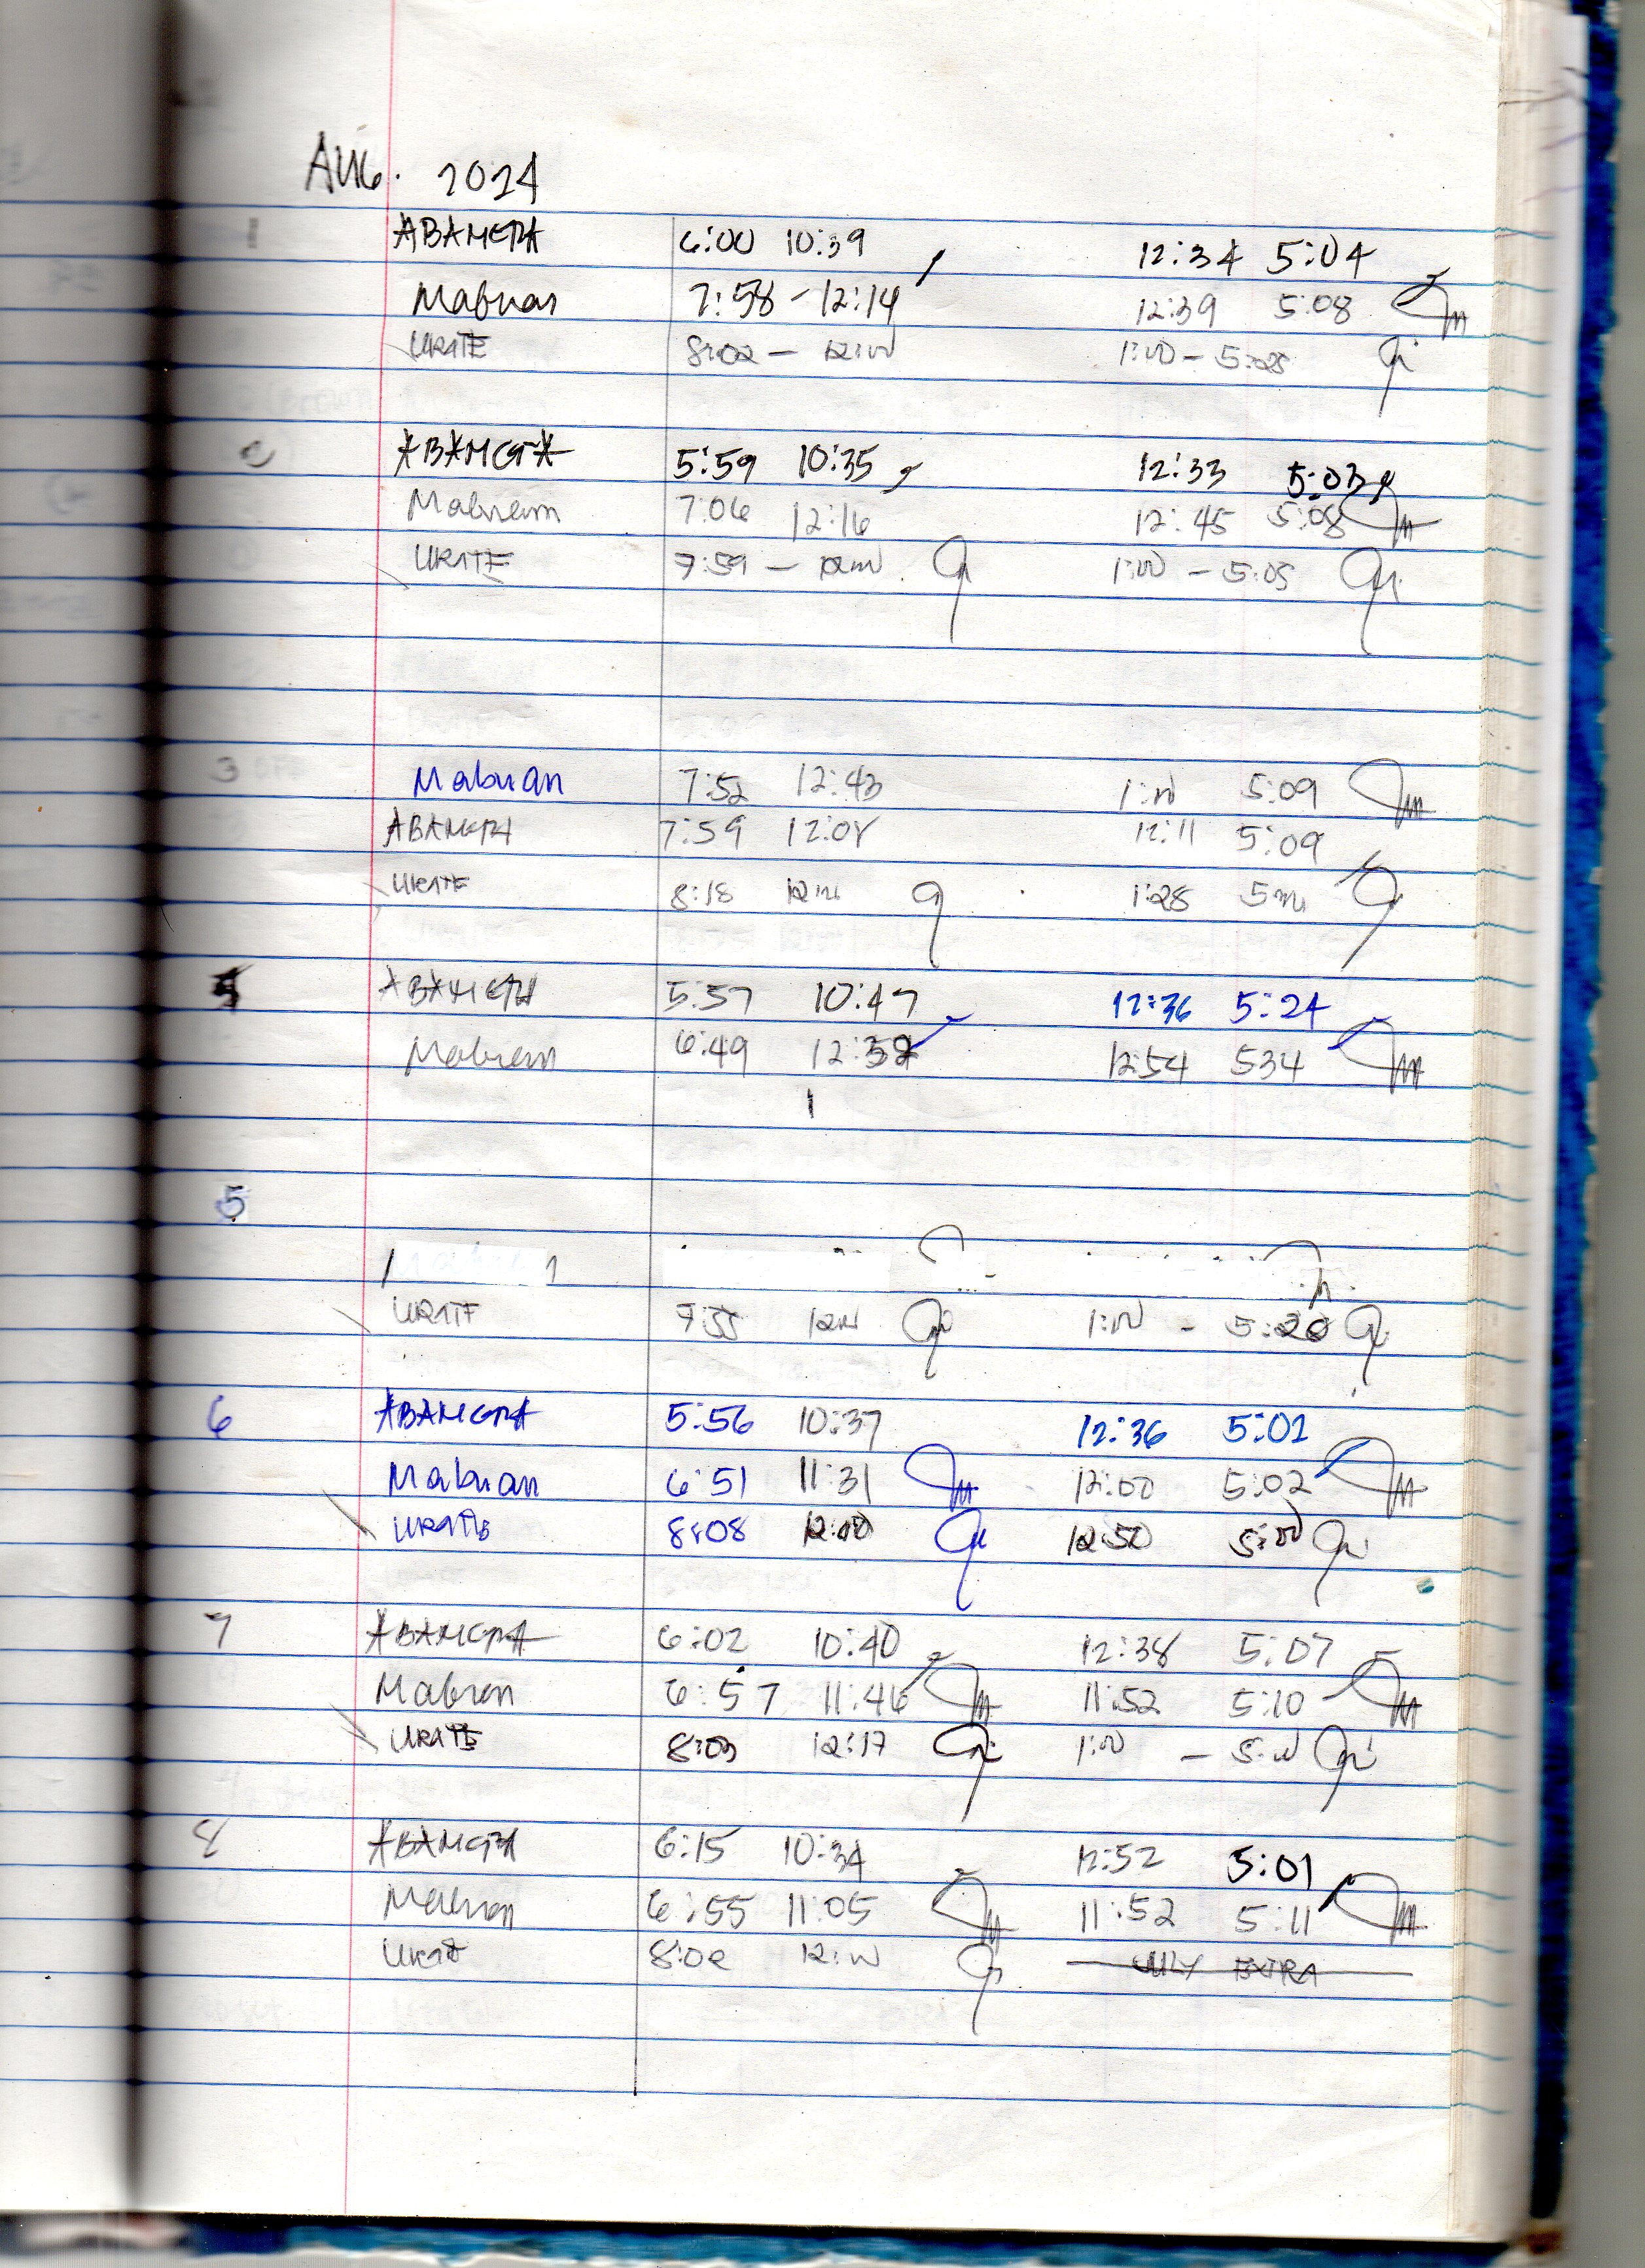 Aug. 2024
1 ABAMGTA 6:00 10:39 12:34 5:04
Mabuan 7:58 - 12:14 12:39 5:08
URATE 8:02 - 12:00 1:00 - 5:28
2 ABAMGTA 5:59 10:35 12:33 5:03
Mabuan 7:06 12:16 12:45 5:08
URATE 7:59 - 1:00 - 5:05
3 Mabuan 7:52 12:43 1:00 5:09
ABAMGTA 7:59 12:08 12:11 5:09
URATE 8:18 1:28
4 ABAMGTA 5:57 10:47 12:36 5:24
Mabuan 6:49 12:54 534
5
URATE 7:55 1:00 - 5:20
6 ABAMGTA 5:56 10:37 12:36 5:01
Mabuan 6:51 11:31 12:00 5:02
URATE 8:08 12:00 12:50 5:00
7 ABAMGTA 6:02 10:40 12:38 5:07
Mabuan 6:57 11:46 11:52 5:10
URATE 8:03 12:17 1:00 - 5:00
8 ABAMGTA 6:15 10:34 12:52 5:01
Mabuan 6:55 11:05 11:52 5:11
URATE 8:02 12:00 JULY EXTRA